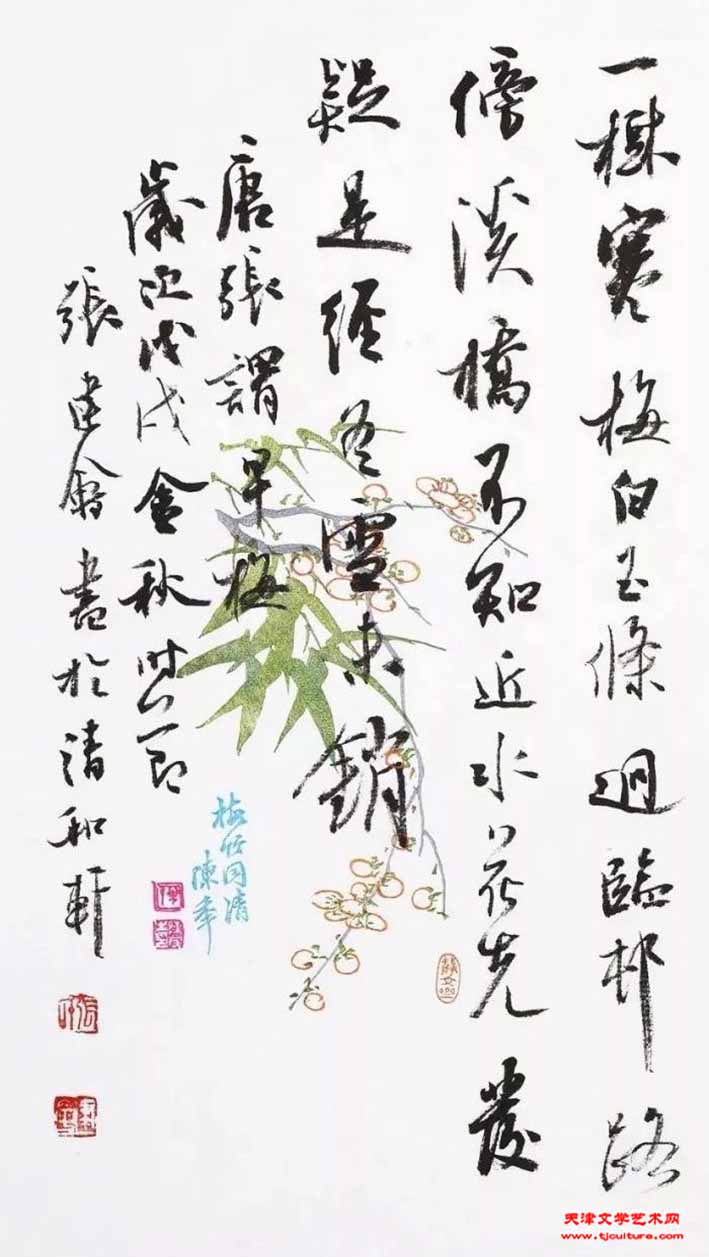 一樹寒梅白玉條迥臨邨路
傍溪橋不知近水花先發
疑是經冬雪未銷
唐張謂早梅
歲次戊戌金秋時節
張建會書於清和軒
梅竹同清
陳年
天津文学艺术网
www.tjculture.com